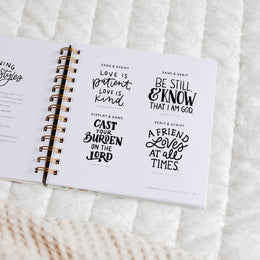 NING
Styles
SANS & SCRIPT
LOVE IS
patient,
LOVE IS
kind.
SANS & SERIF
BE STILL,
& KNOW
THAT I AM GOD.
DISPLAY & SANS
CAST
YOUR
BURDEN
ON THE
LORD
SERIF & SCRIPT
A FRIEND
Loves
AT all
TIMES.